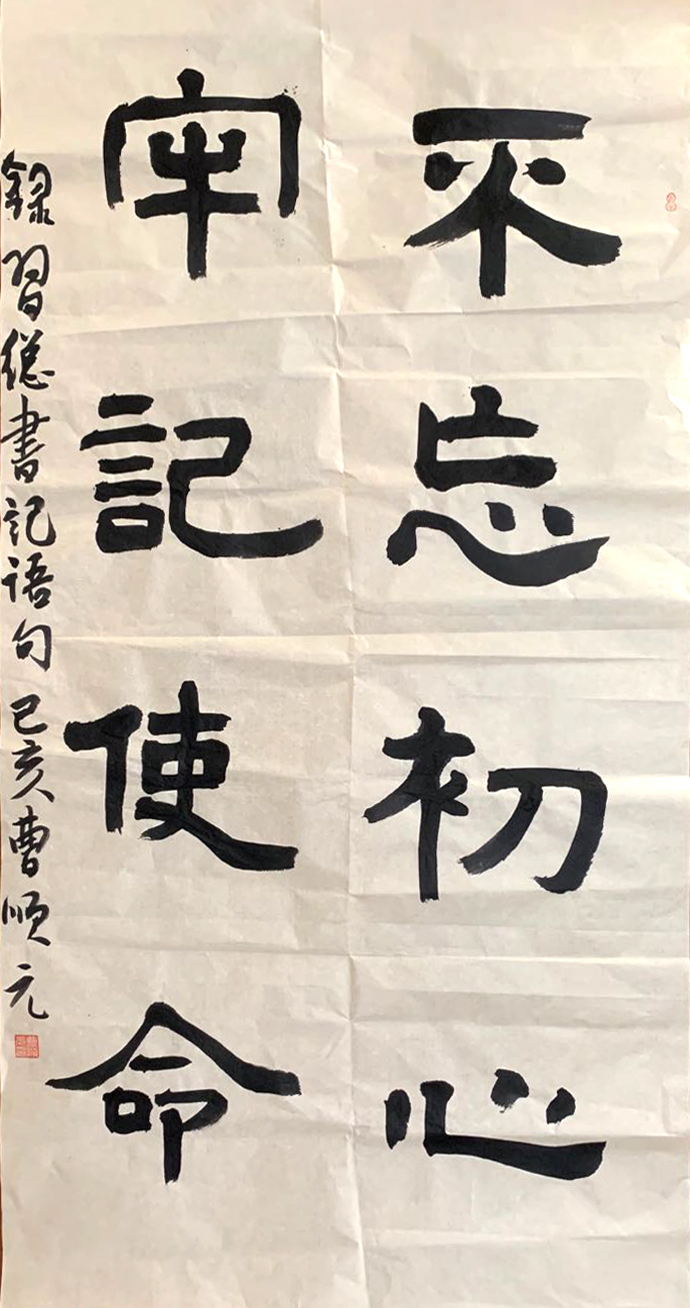 不忘初心
牢記使命
録習總書記語句己亥曹順元